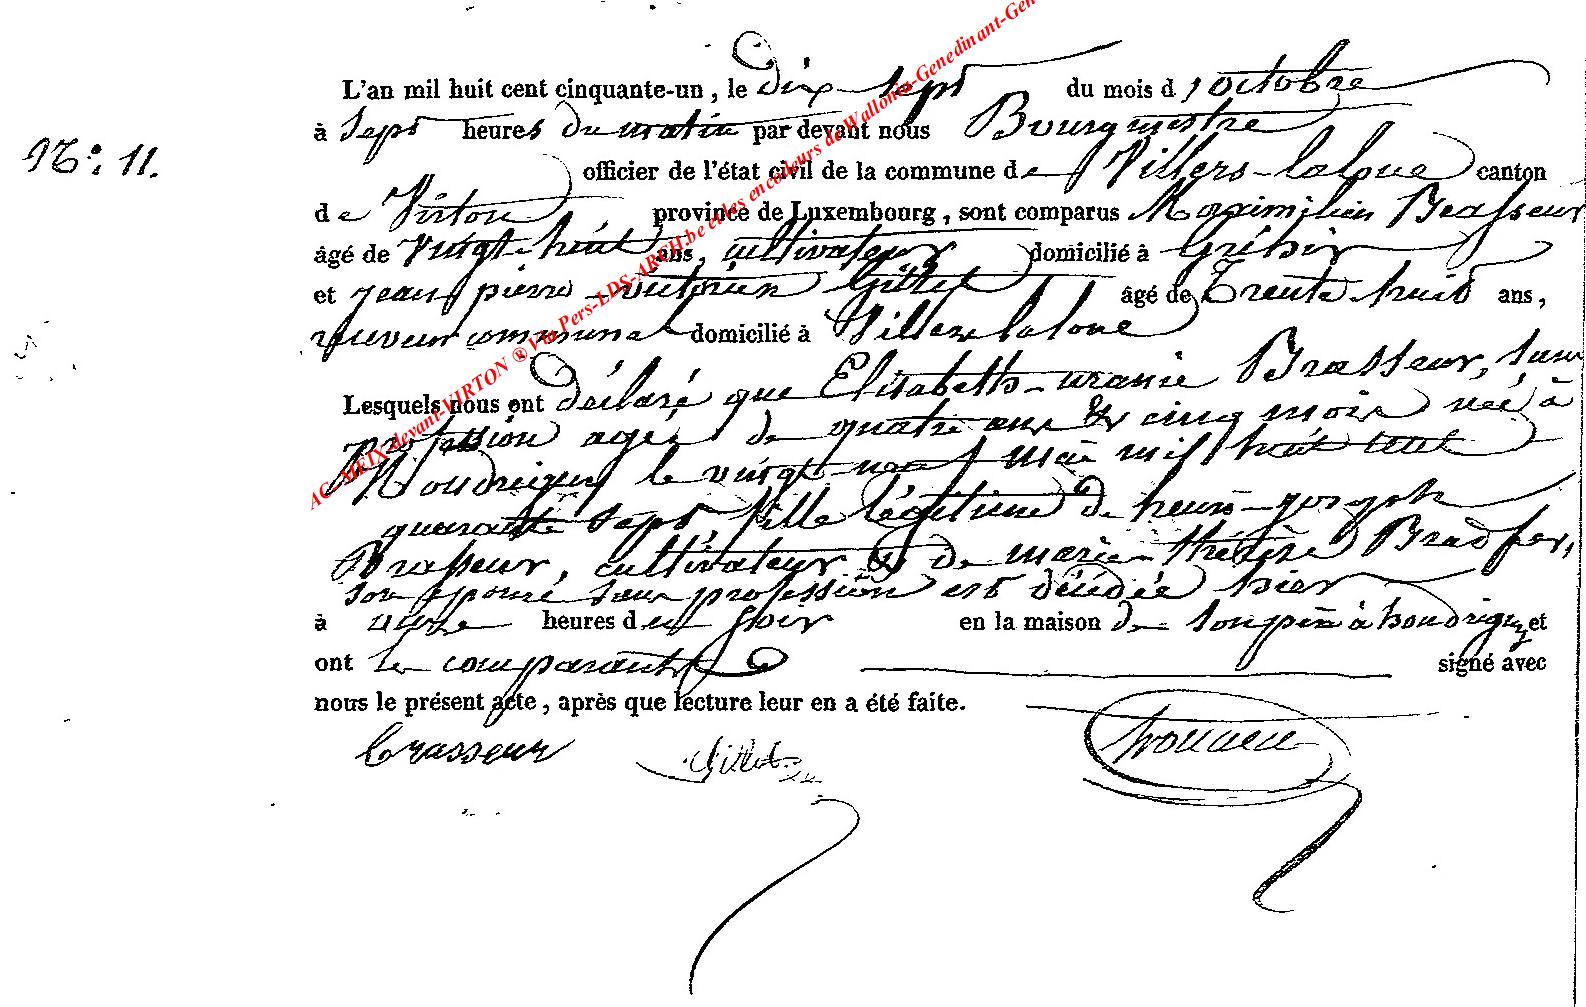 L'an mil huit cent cinquante-un, le dix-sept du mois d'octobre
à sept heures du matin par devant nous Bourgmestre
N°: 11.
officier de l'état civil de la commune de Villers-laloue canton
de Virton province de Luxembourg, sont comparus Maximilien Brasseur
âgé de vingt-huit ans, cultivateur domicilié à
et jean pierre victorien Gillet âgé de Trente huit ans,
receveur communal domicilié à Villers laloue
Lesquels nous ont déclaré que Elisabeth-uranie Brasseur, sans
profession agée de quatre ans & cinq mois née à
Houdrigny le vingt neuf mai mil huit cent
quarante sept, fille légitime de henri-joseph
Brasseur, cultivateur & de marie-thérèse Bradfer,
son épouse sans profession est décédée hier
à onze heures du soir en la maison de son père à houdrigny et
ont les comparants signé avec
nous le présent acte, après que lecture leur en a été faite.
brasseur Gillet
AC-MEIX-devant-VIRTON ® Via Pers-LDS-ARCH.be et les encodeurs de Wallonia-Genedinant-Gen